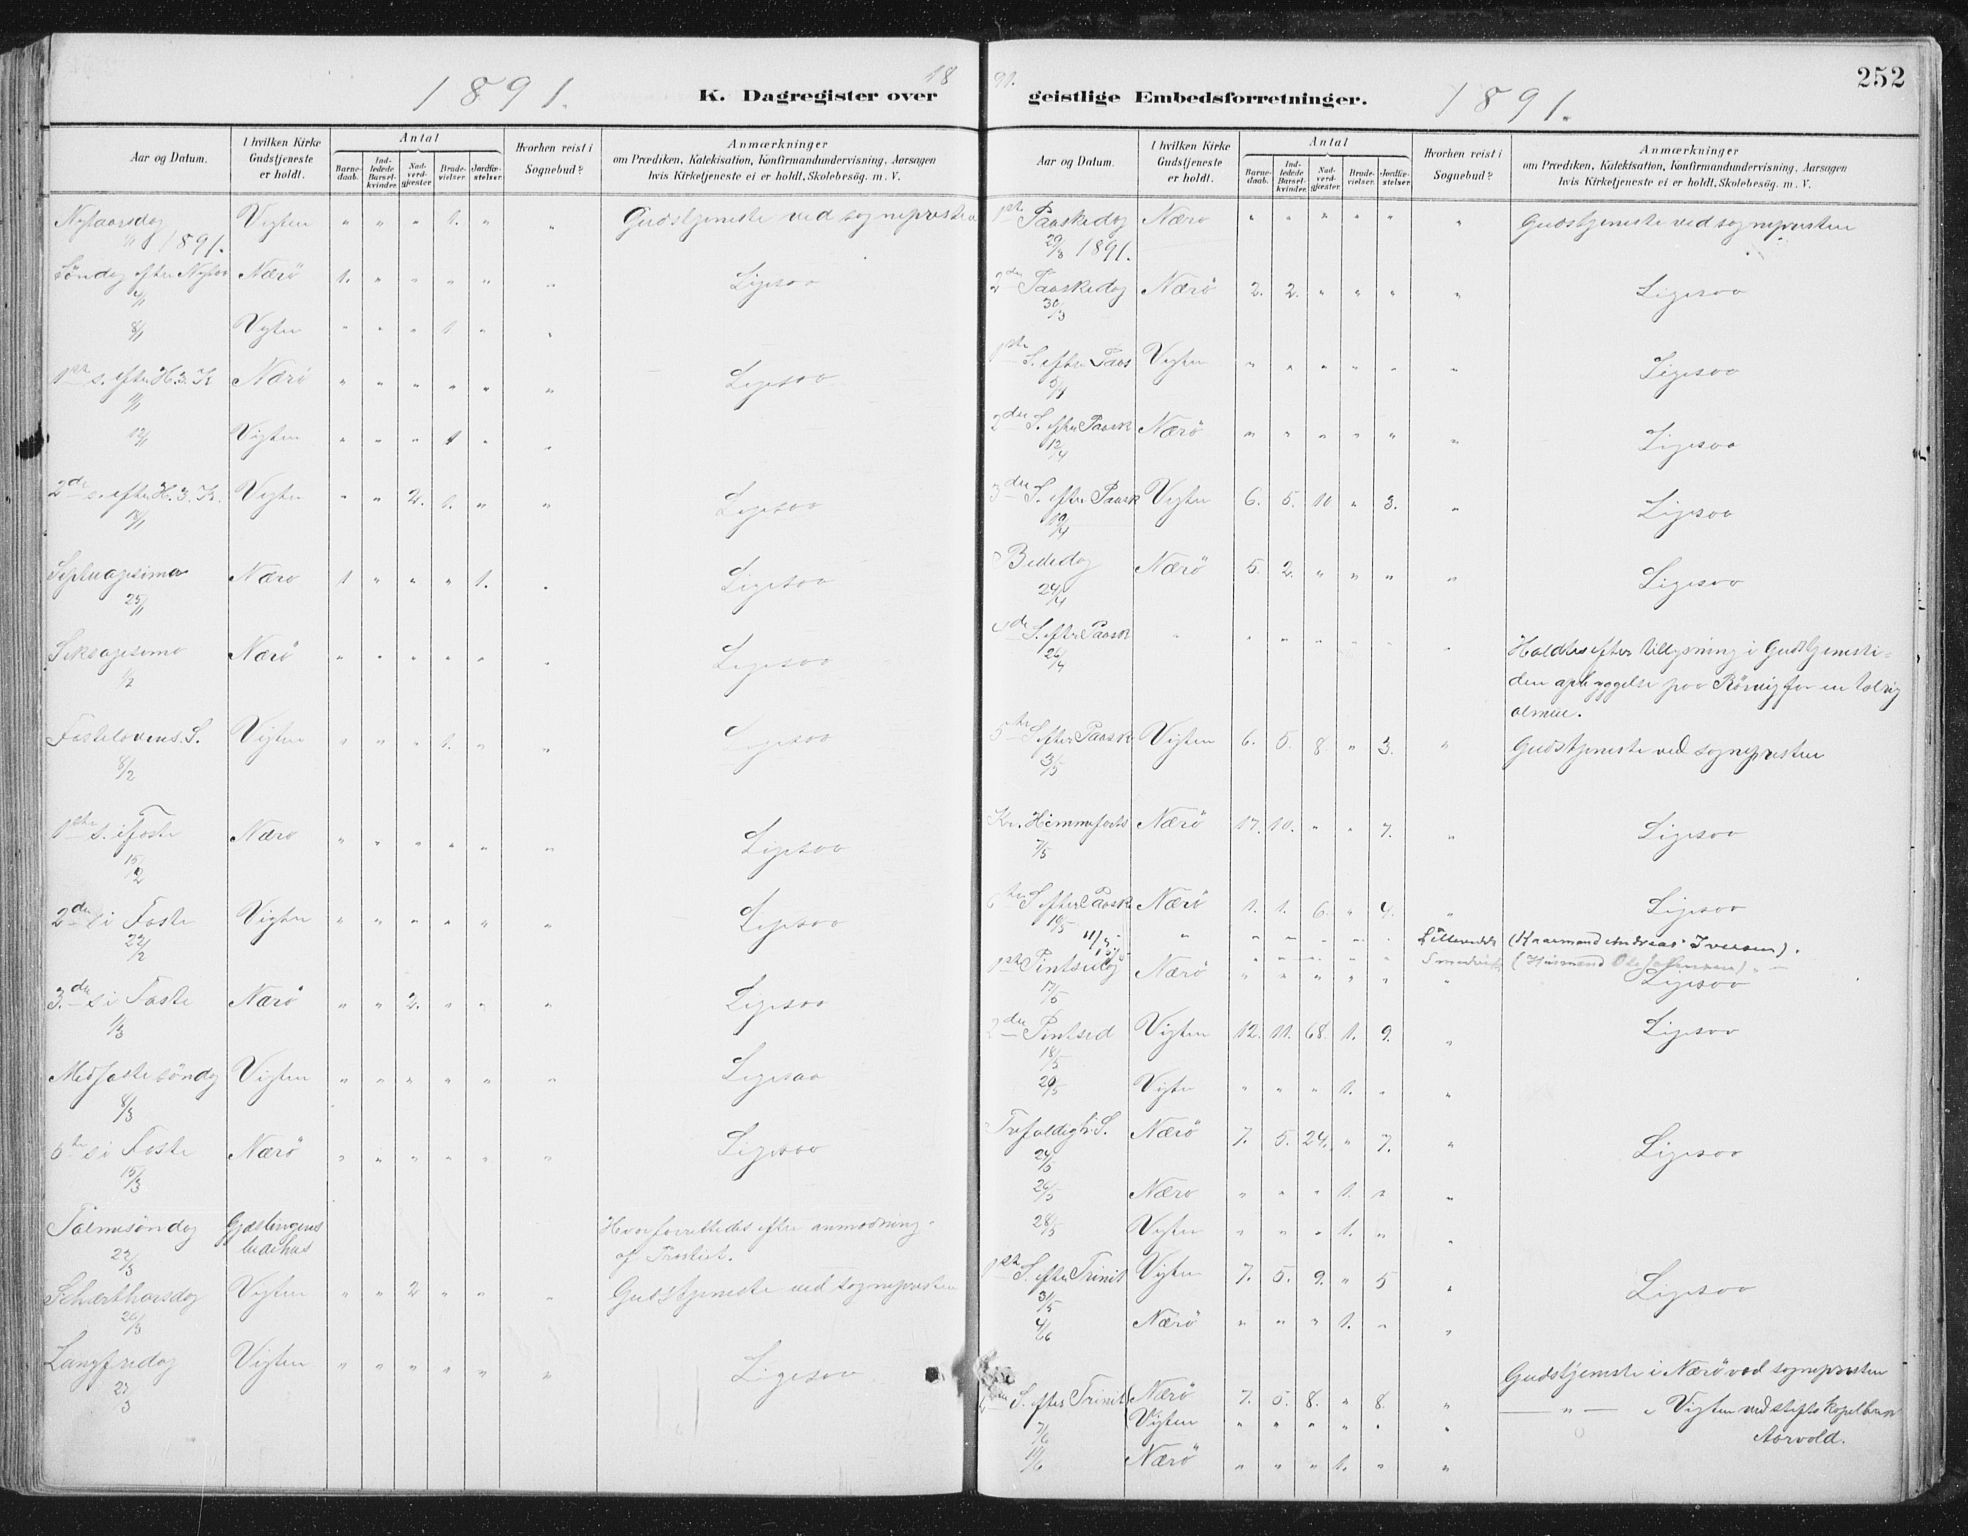 252
1891. K. Dagregister over 18
Aar og Datum. I hvilken Kirke Gudstjeneste er holdt. Antal Barnedaab. Indledede Barselkvinder. Nadverdgjester. Brudevielser. Jordfæstelser. Hvorhen reist i Sognebud? Anmærkninger om Prædiken, Katekisation, Konfirmandundervisning, Aarsagen hvis Kirketjeneste ei er holdt, Skolebesøg. m. V.
Nytaarsdag Vigten " " " 1. " " Gudstjeneste ved sognepresten
1/1 1891.
Søndag efter Nytaar Nærö 1. " " " " " Ligesaa
4/1
8/1 Vigten " " " 1. " "
1ste s. efter H. 3. K. Nærö " " " " " " Ligesaa
11/1
12/1 Vigten " " " 1 " "
2den s. efter H. 3. K. Vigten " " 2. 1. " " Ligesaa
18/1
Septuagesima Nærö 1. " " " 1. " Ligesaa
25/1
Seksagesima Nærö " " " " " " Ligesaa
1/2
Fastelavens S. Vigten " " " 1. " " Ligesaa
8/2
1ste s. i Faste Nærö " " " " " " Ligesaa
15/2
2den s i Faste Vigten " " " " " " Ligesaa
22/2
3. die s i Faste Nærö " " 2. " " " Ligesaa
1/3
Midfaste söndag Vigten " " " " " " Ligesaa
8/3
5te s i Faste Nærö " " " " " " Ligesaa
15/3
Palmesöndag Gjæslingens Hvor forrettedes efter anmodning
22/3 bedehus af Prostiet.
Schærthorsdag Vigten " " 2 " " " Gudstjeneste ved sognepresten
26/3
Langfredag Vigten " " " " " " Ligesaa
27/3
91. geistlige Embedsforretninger. 1891.
Aar og Datum. I hvilken Kirke Gudstjeneste er holdt. Antal Barnedaab. Indledede Barselkvinder. Nadverdgjester. Brudevielser. Jordfæstelser. Hvorhen reist i Sognebud? Anmærkninger om Prædiken, Katekisation, Konfirmandundervisning, Aarsagen hvis Kirketjeneste ei er holdt, Skolebesøg. m. V.
1ste Paaskedag Nærö " " " " " " Gudstjeneste ved sognepresten
29/3 1891.
2den Paaskedag Nærö 2. 2. " " " " Ligesaa
30/3
1ste S. efter Paas Vigten " " " " " " Ligesaa
5/4
2den S. efter Paask Nærö " " " " " " Ligesaa
12/4
3die S. efter Paask Vigten 6. 5. 10 " 3. " Ligesaa
19/4
Bededag Nærö 5. 2. " " " " Ligesaa
24/4
4de S. efter Paask " " " " " " " Holdtes efter tillysning i Gudstjenesti-
26/4 den opbyggelse paa Rörvig for en talrig
almue.
5te S efter Paask Vigten 6. 5. 8. " 3. " Gudstjeneste ved sognepresten
3/5
Kr. Himmelfarts Nærö 17. 10. " " 7. " Ligesaa
7/5
6te S efter Paask Nærö 1. 1. 6. " 4. " Ligesaa
10/5
11/5 " " " " " " (Kaarmand Andreas Iversen).
(Husmand Ole Johansen)
1ste Pintsedag Nærö " " " " " " Ligesaa
17/5
2den Pintsed Vigten 12. 11. 68. 1. 9. " Ligesaa
18/5
20/5 Vigten " " " 1. " "
Trefoldigh. S. Nærö 7. 5. 24. " 7. " Ligesaa
24/5
26/5 Nærö " " " 1. " "
28/5 Vigten " " " 1. " "
1ste S. efter Trinit Vigten 7. 5. 9. " 5 " Ligesaa
31/5
4/6 Nærö " " " 1. " "
Gudstjeneste i Nærö ved sognepresten
2den S. efter Trinit Nærö 7. 5. 8. " 8. " — " — " Vigten ved stiftskapellan
7/6 Vigten " " " " " " Aarvold.
11/6 Nærö " " " 1. " "